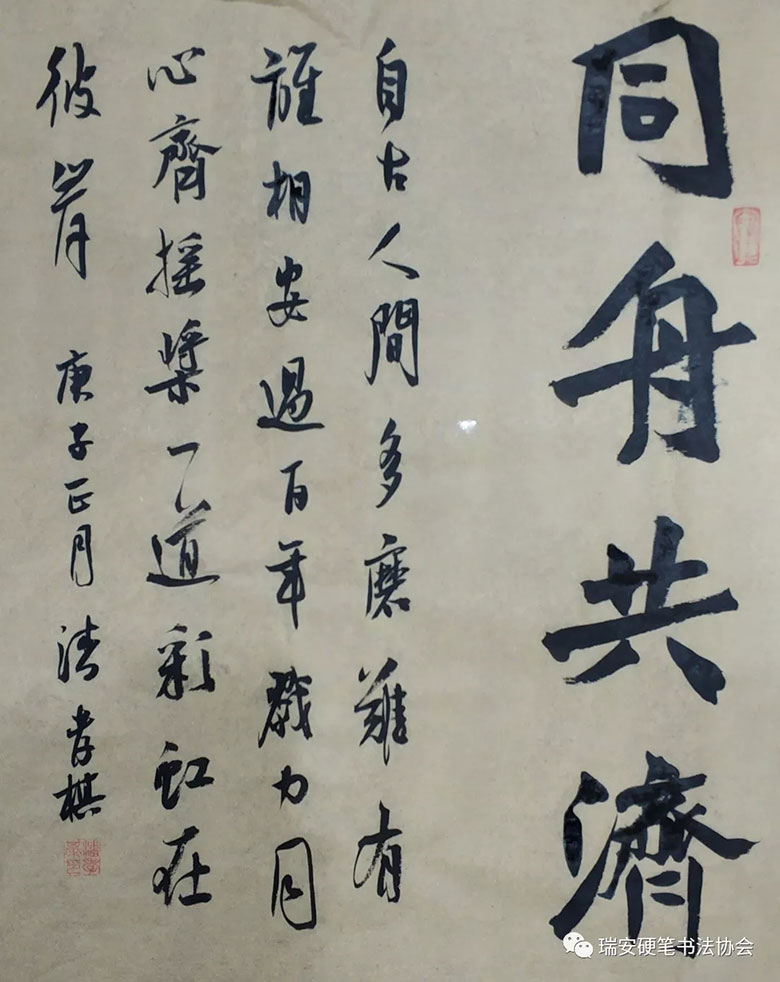 同舟共濟
自古人間多磨難有
誰相安過百年戮力同
心齊摇槳一道彩虹在
彼岸 庚子正月 棋
瑞安硬笔书法协会